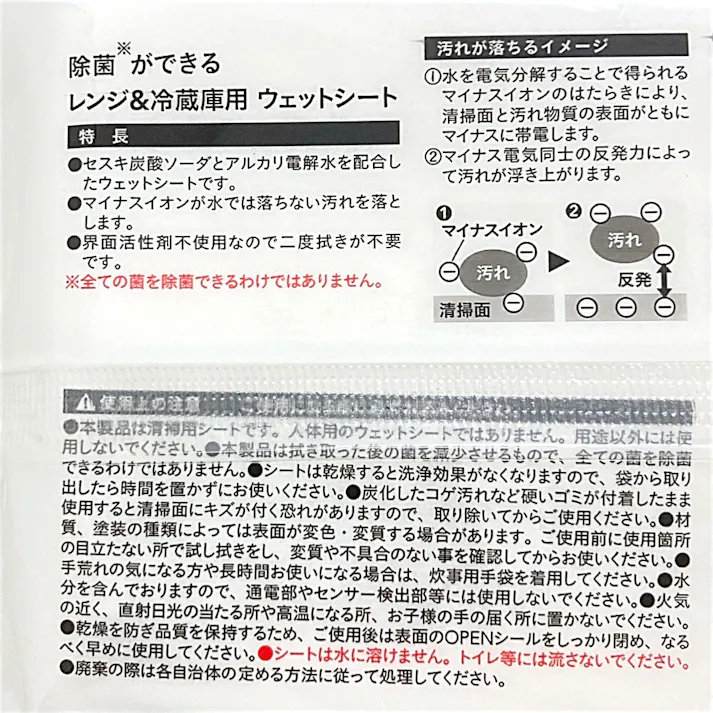 除菌※ができる
レンジ&冷蔵庫用 ウェットシート
特 長
●セスキ炭酸ソーダとアルカリ電解水を配合し
たウェットシートです。
●マイナスイオンが水では落ちない汚れを落と
します。
●界面活性剤不使用なので二度拭きが不要
です。
※全ての菌を除菌できるわけではありません。
汚れが落ちるイメージ
①水を電気分解することで得られる
マイナスイオンのはたらきにより、
清掃面と汚れ物質の表面がともに
マイナスに帯電します。
②マイナス電気同士の反発力によっ
て汚れが浮き上がります。
❶ ❷
マイナスイオン
汚れ
汚れ
反発
清掃面
使用上の注意
●本製品は清掃用シートです。人体用のウェットシートではありません。用途以外には使
用しないでください。●本製品は拭き取った後の菌を減少させるもので、全ての菌を除菌
できるわけではありません。●シートは乾燥すると洗浄効果がなくなりますので、袋から取り
出したら時間を置かずにお使いください。●炭化したコゲ汚れなど硬いゴミが付着したまま
使用すると清掃面にキズが付く恐れがありますので、取り除いてからご使用ください。●材
質、塗装の種類によっては表面が変色・変質する場合があります。ご使用前に使用箇所
の目立たない所で試し拭きをし、変質や不具合のない事を確認してからお使いください。●
手荒れの気になる方や長時間お使いになる場合は、炊事用手袋を着用してください。●水
分を含んでおりますので、通電部やセンサー検出部等には使用しないでください。●火気
の近く、直射日光の当たる所や高温になる所、お子様の手の届く所に置かないでください。
●乾燥を防ぎ品質を保持するため、ご使用後は表面のOPENシールをしっかり閉め、なる
べく早めに使用してください。●シートは水に溶けません。トイレ等には流さないでください。
●廃棄の際は各自治体の定める方法に従って処理してください。